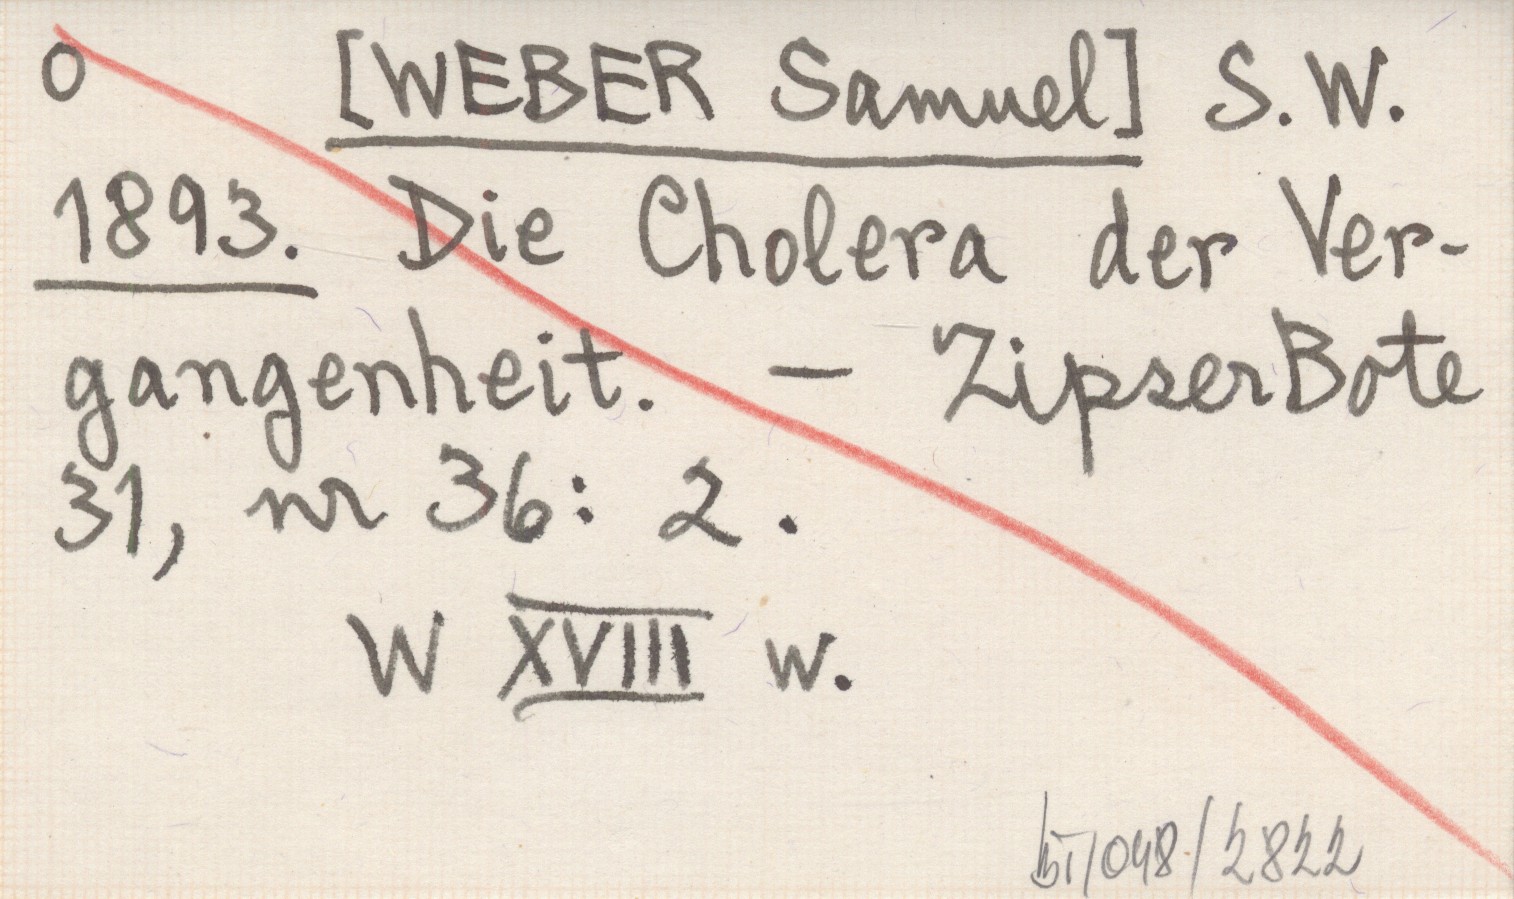 O [WEBER Samuel] S. W.
1893. Die Cholera der Ver-
gangenheit. — Zipser Bote
31, nr 36: 2.
W XVIII w.
bT/048/2822